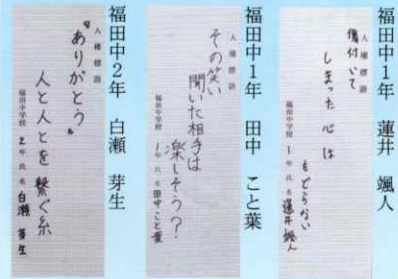 福田中1年 蓮井 颯人
人権標語
傷付いて
しまった心は
もどらない
福田中学校 1年 氏名 蓮井颯人
福田中1年 田中 こと葉
人権標語
その笑い
聞いた相手は
楽しそう?
福田中学校 1年 氏名 田中こと葉
福田中2年 白瀬 芽生
人権標語
"ありがとう"
人と人とを繋ぐ糸
福田中学校 2年 氏名 白瀬 芽生